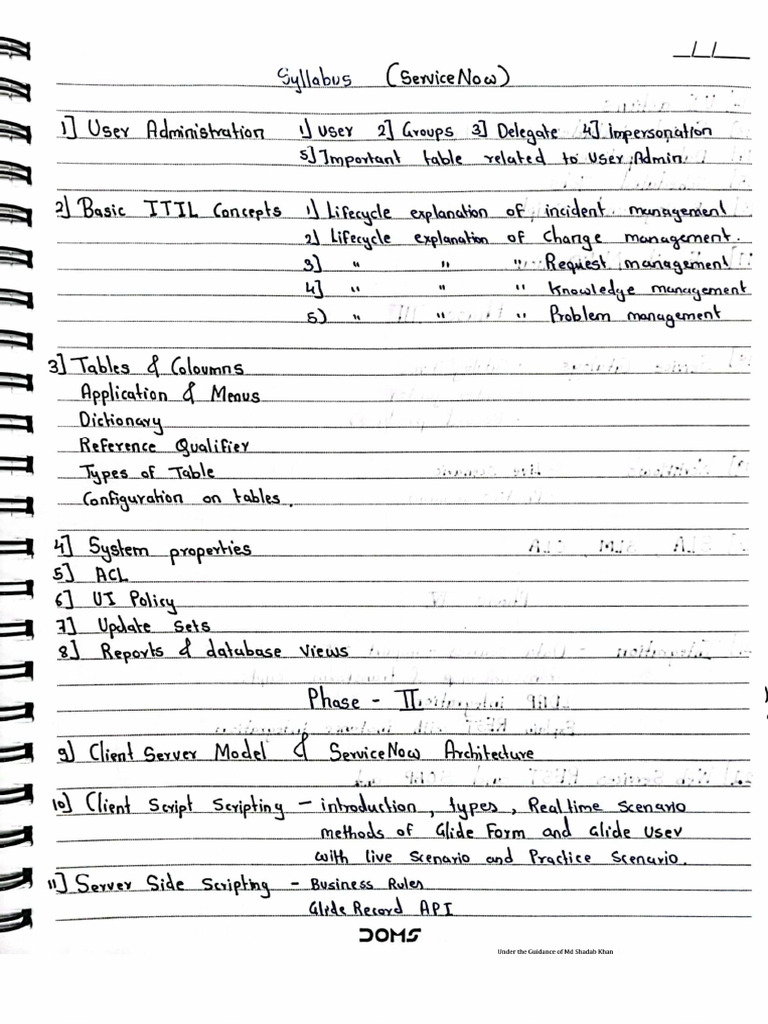 __/__/____
Syllabus (ServiceNow)
1] User Administration 1) User 2] Groups 3] Delegate 4] impersonation
5] Important table related to User Admin.
2] Basic ITIL Concepts 1) Lifecycle explanation of incident management
2) Lifecycle explanation of Change management.
3] " " " Request management
4] " " " Knowledge management
5) " " " Problem management
3] Tables & Coloumns
Application & Menus
Dictionary
Reference Qualifier
Types of Table
Configuration on tables.
4] System properties
5] ACL
6] UI Policy
7] Update Sets
8] Reports & database views
Phase - II
9] Client Server Model & ServiceNow Architecture
10] Client Script Scripting - introduction, types, Real time scenario
methods of Glide Form and Glide User
with live scenario and Practice scenario.
11] Server Side Scripting - Business Rules
Glide Record API
DOMS
Under the Guidance of Md Shadab Khan